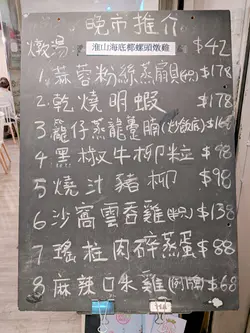 晚市推介
燉湯 淮山海底椰螺頭燉雞 $42
1. 蒜蓉粉絲蒸扇貝 $178
2. 乾燒明蝦 $178
3. 籠仔蒸龍躉腩(炒飯底) $168
4 黑椒牛柳粒 $98
5 燒汁豬柳 $98
6 沙窩雲吞雞(半只) $138
7 瑤柱肉碎蒸蛋 $88
8 麻辣口水雞(例牌) $68